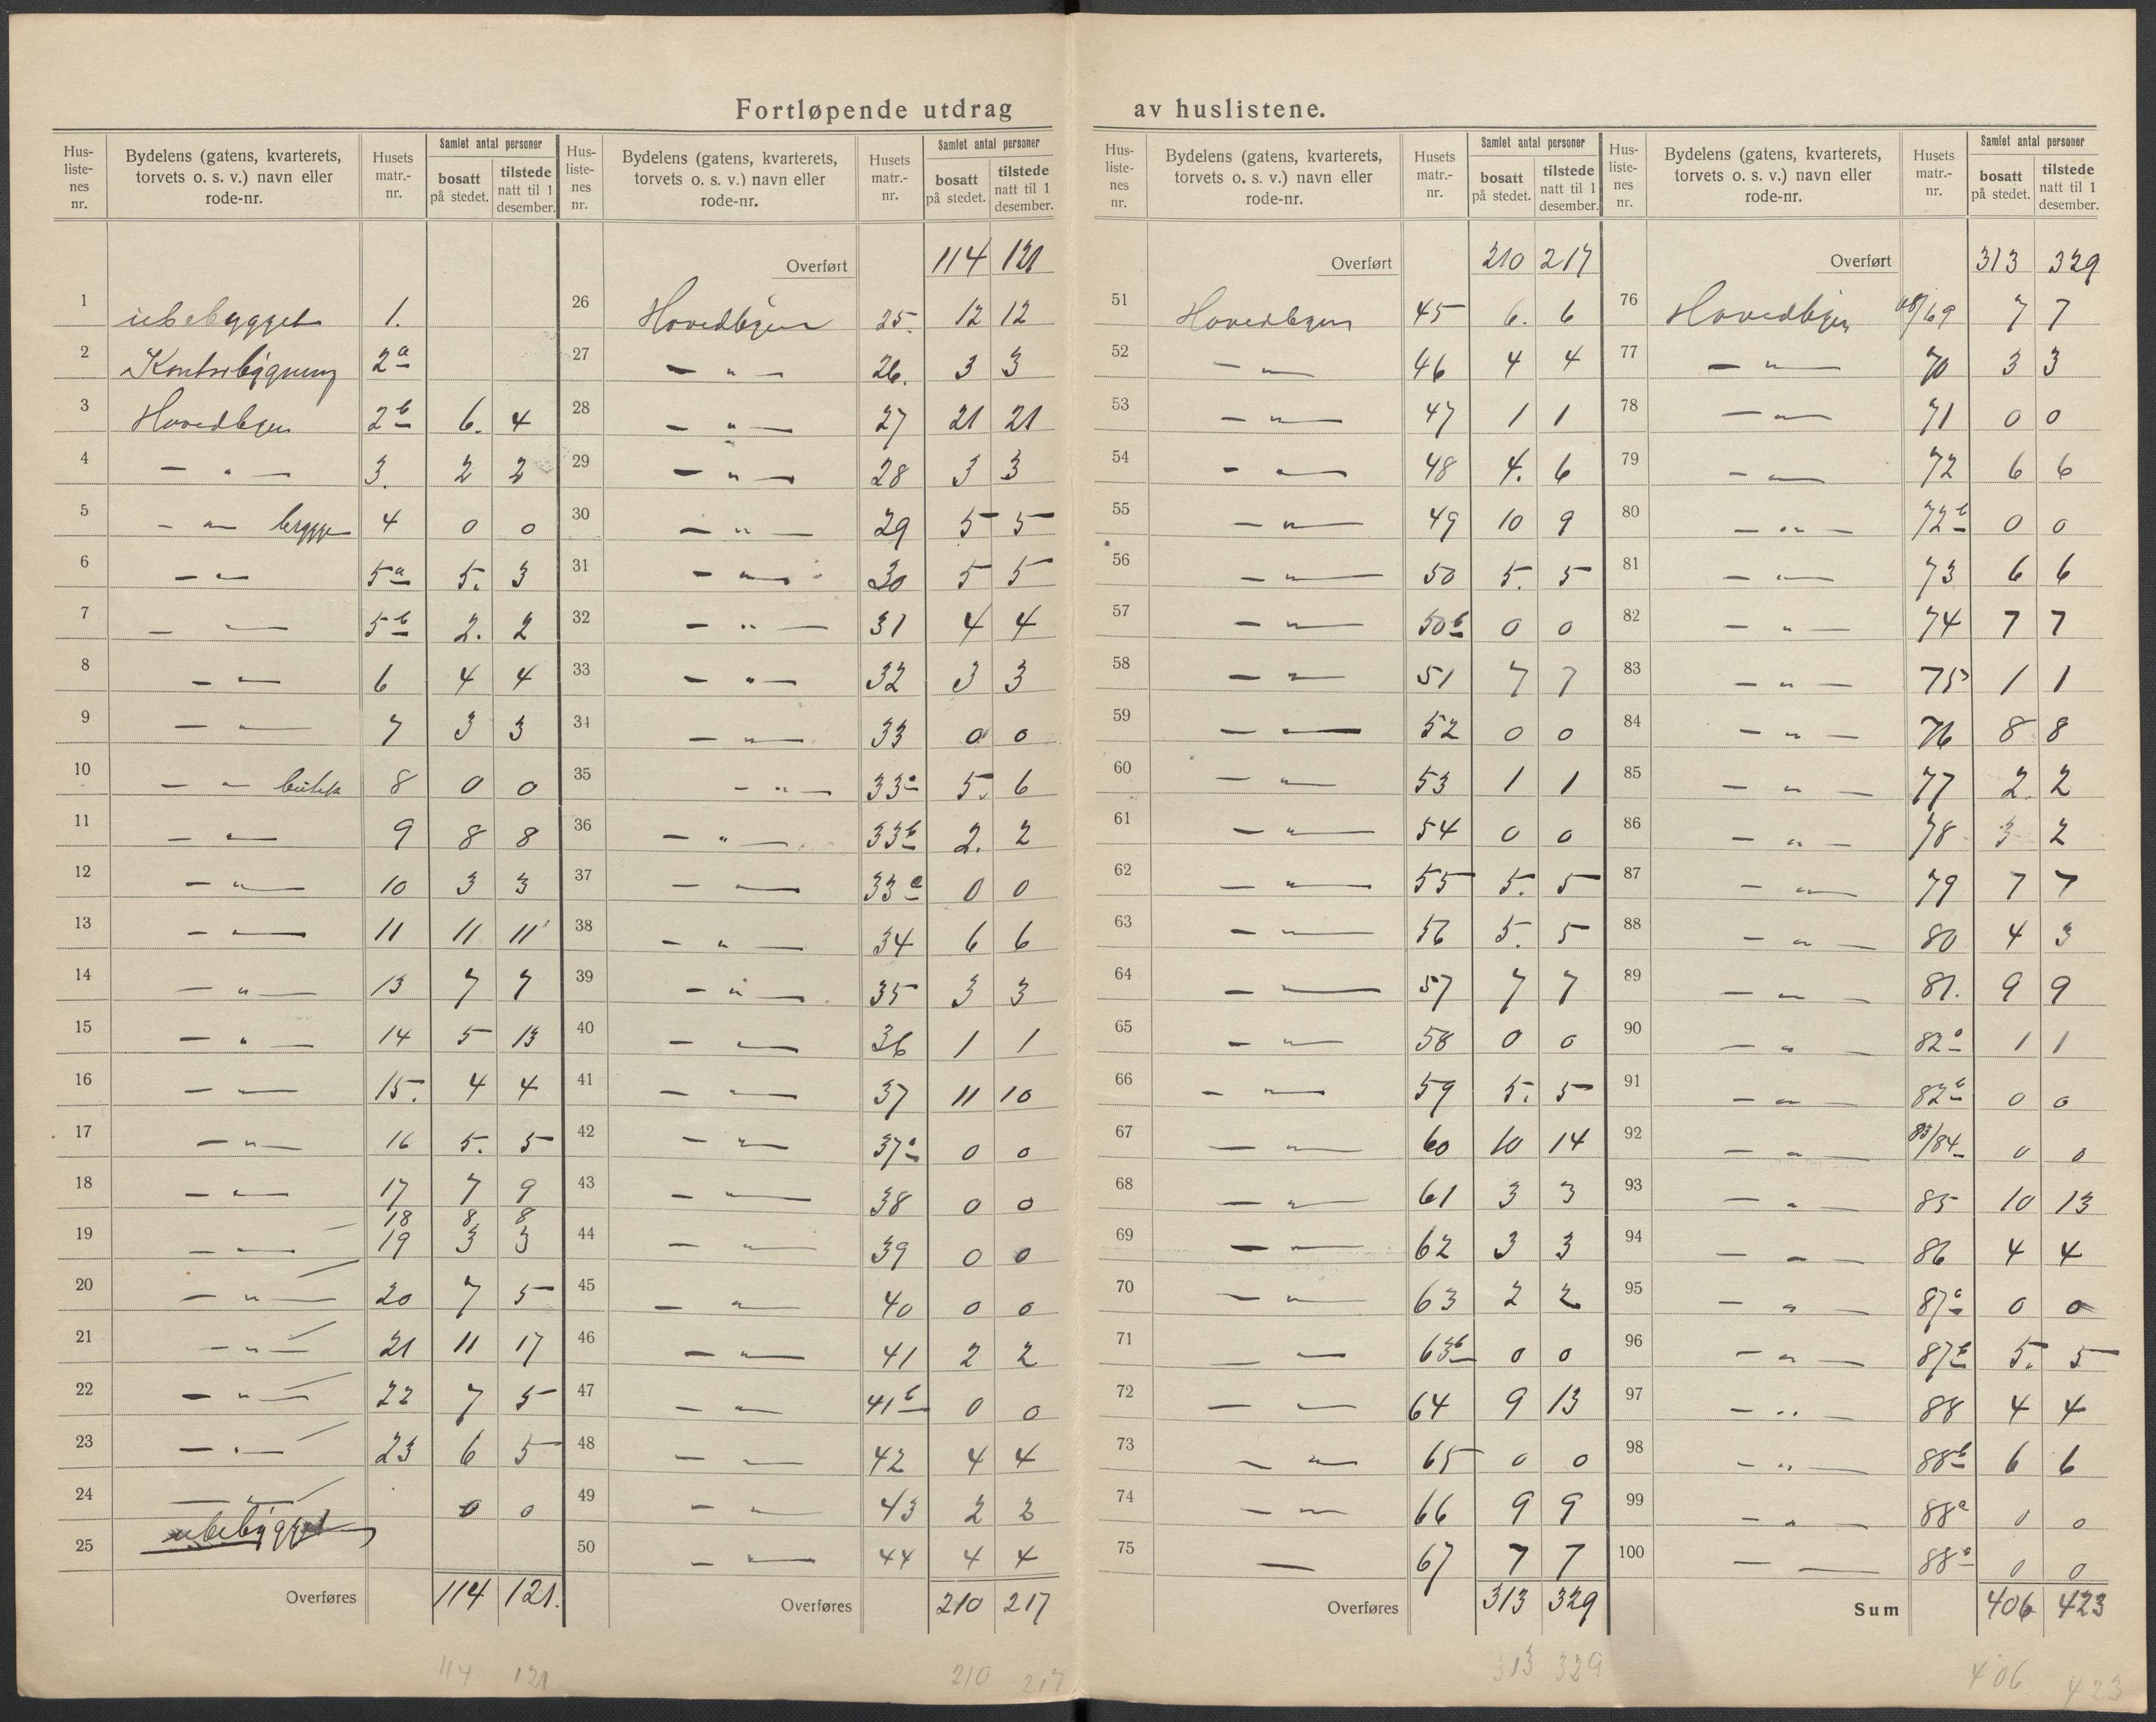 Fortløpende utdrag av huslistene.
Hus-listenes nr. | Bydelens (gatens, kvarterets, torvets o. s. v.) navn eller rode-nr. | Husets matr.-nr. | Samlet antal personer bosatt på stedet. | tilstede natt til 1 desember.
1 ubebygget 1.
2 Kontorbygning 2a
3 Hovedbyen 2b 6. 4
4 — " — 3. 2 2
5 — " — brygge 4 0 0
6 — " 5a 5. 3
7 — " — 5b 2. 2
8 — " — 6 4 4
9 — " — 7 3 3
10 — " butik 8 0 0
11 — " — 9 8 8
12 — " — 10 3 3
13 — " — 11 11 11
14 — " — 13 7 7
15 — " — 14 5 13
16 — " — 15. 4 4
17 — " — 16 5. 5
18 — " — 17 7 9
18 8 8
19 — " — 19 3 3
20 — " — 20 7 5
21 — " — 21 11 17
22 — " — 22 7 5
23 — " — 23 6 5
24 — " — 0 0
ubebygget
25
Overføres 114 121.
114 121
Hus-listenes nr. | Bydelens (gatens, kvarterets, torvets o. s. v.) navn eller rode-nr. | Husets matr.-nr. | Samlet antal personer bosatt på stedet. | tilstede natt til 1 desember.
Overført 114 121
26 Hovedbyen 25. 12 12
27 — " — 26. 3 3
28 — " — 27 21 21
29 — " — 28 3 3
30 — " — 29 5 5
31 — " — 30 5 5
32 — " — 31 4 4
33 — " — 32 3 3
34 — " — 33 0 0
35 — " — 33a 5. 6
36 — " — 33b 2. 2
37 — " — 33c 0 0
38 — " — 34 6 6
39 — " — 35 3 3
40 — " — 36 1 1
41 — " — 37 11 10
42 — " — 37a 0 0
43 — " — 38 0 0
44 — " — 39 0 0
45 — " — 40 0 0
46 — " — 41 2 2
47 — " — 41b 0 0
48 — " — 42 4 4
49 — " — 43 2 2
50 — " — 44 4 4
Overføres 210 217
210 217
Hus-listenes nr. | Bydelens (gatens, kvarterets, torvets o. s. v.) navn eller rode-nr. | Husets matr.-nr. | Samlet antal personer bosatt på stedet. | tilstede natt til 1 desember.
Overført 210 217
51 Hovedbyen 45 6. 6
52 — " — 46 4 4
53 — " — 47 1 1
54 — " — 48 4. 6
55 — " — 49 10 9
56 — " — 50 5. 5
57 — " — 50b 0 0
58 — " — 51 7 7
59 — " — 52 0 0
60 — " — 53 1 1
61 — " — 54 0 0
62 — " — 55 5. 5
63 — " — 56 5. 5
64 — " — 57 7 7
65 — " — 58 0 0
66 — " — 59 5. 5
67 — " — 60 10 14
68 — " — 61 3 3
69 — " — 62 3 3
70 — " — 63 2 2
71 — " — 63b 0 0
72 — " — 64 9 13
73 — " — 65 0 0
74 — " — 66 9 9
75 — 67 7 7
Overføres 313 329
313 329
Hus-listenes nr. | Bydelens (gatens, kvarterets, torvets o. s. v.) navn eller rode-nr. | Husets matr.-nr. | Samlet antal personer bosatt på stedet. | tilstede natt til 1 desember.
Overført 313 329
76 Hovedbyen 68/69 7 7
77 — " — 70 3 3
78 — " — 71 0 0
79 — " — 72 6 6
80 — " — 72b 0 0
81 — " — 73 6 6
82 — " — 74 7 7
83 — " — 75 1 1
84 — " — 76 8 8
85 — " — 77 2. 2
86 — " — 78 3 2
87 — " — 79 7 7
88 — " — 80 4 3
89 — " — 81. 9 9
90 — " — 82a 1 1
91 — " — 82b 0 0
92 — " — 83/84 0 0
93 — " — 85 10 13
94 — " — 86 4 4
95 — " — 87a 0 0
96 — " — 87b 5. 5
97 — " — 88 4 4
98 — " — 88b 6 6
99 — " — 88a 0 0
100 — — 88c 0 0
Sum 406 423
406 423